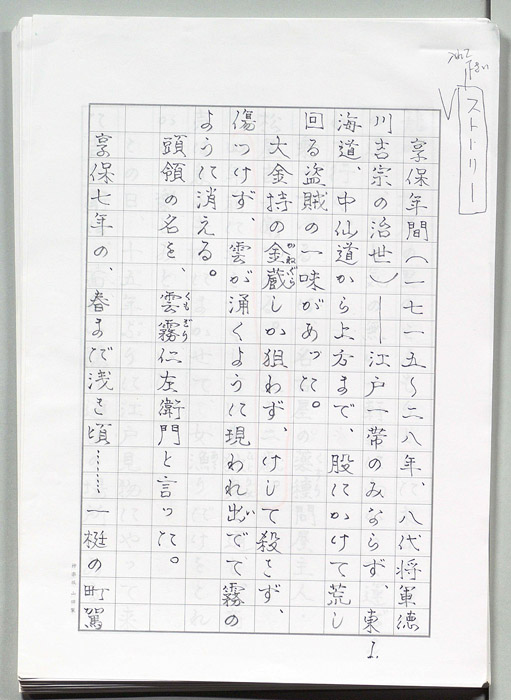 入れて下さい
ストーリー
享保年間(一七一五〜二八年、八代将軍徳
川吉宗の治世)——江戸一帯のみならず、東
海道、中仙道から上方まで、股にかけて荒し
回る盗賊の一味があった。
大金持の金蔵しか狙わず、けして殺さず、
かねぐら
傷つけず、雲が涌くように現われ出でて霧の
い
ように消える。
頭領の名を、雲霧仁左衛門と言った。
くもぎり
享保七年の、春まだ浅き頃……一梃の町駕
1.